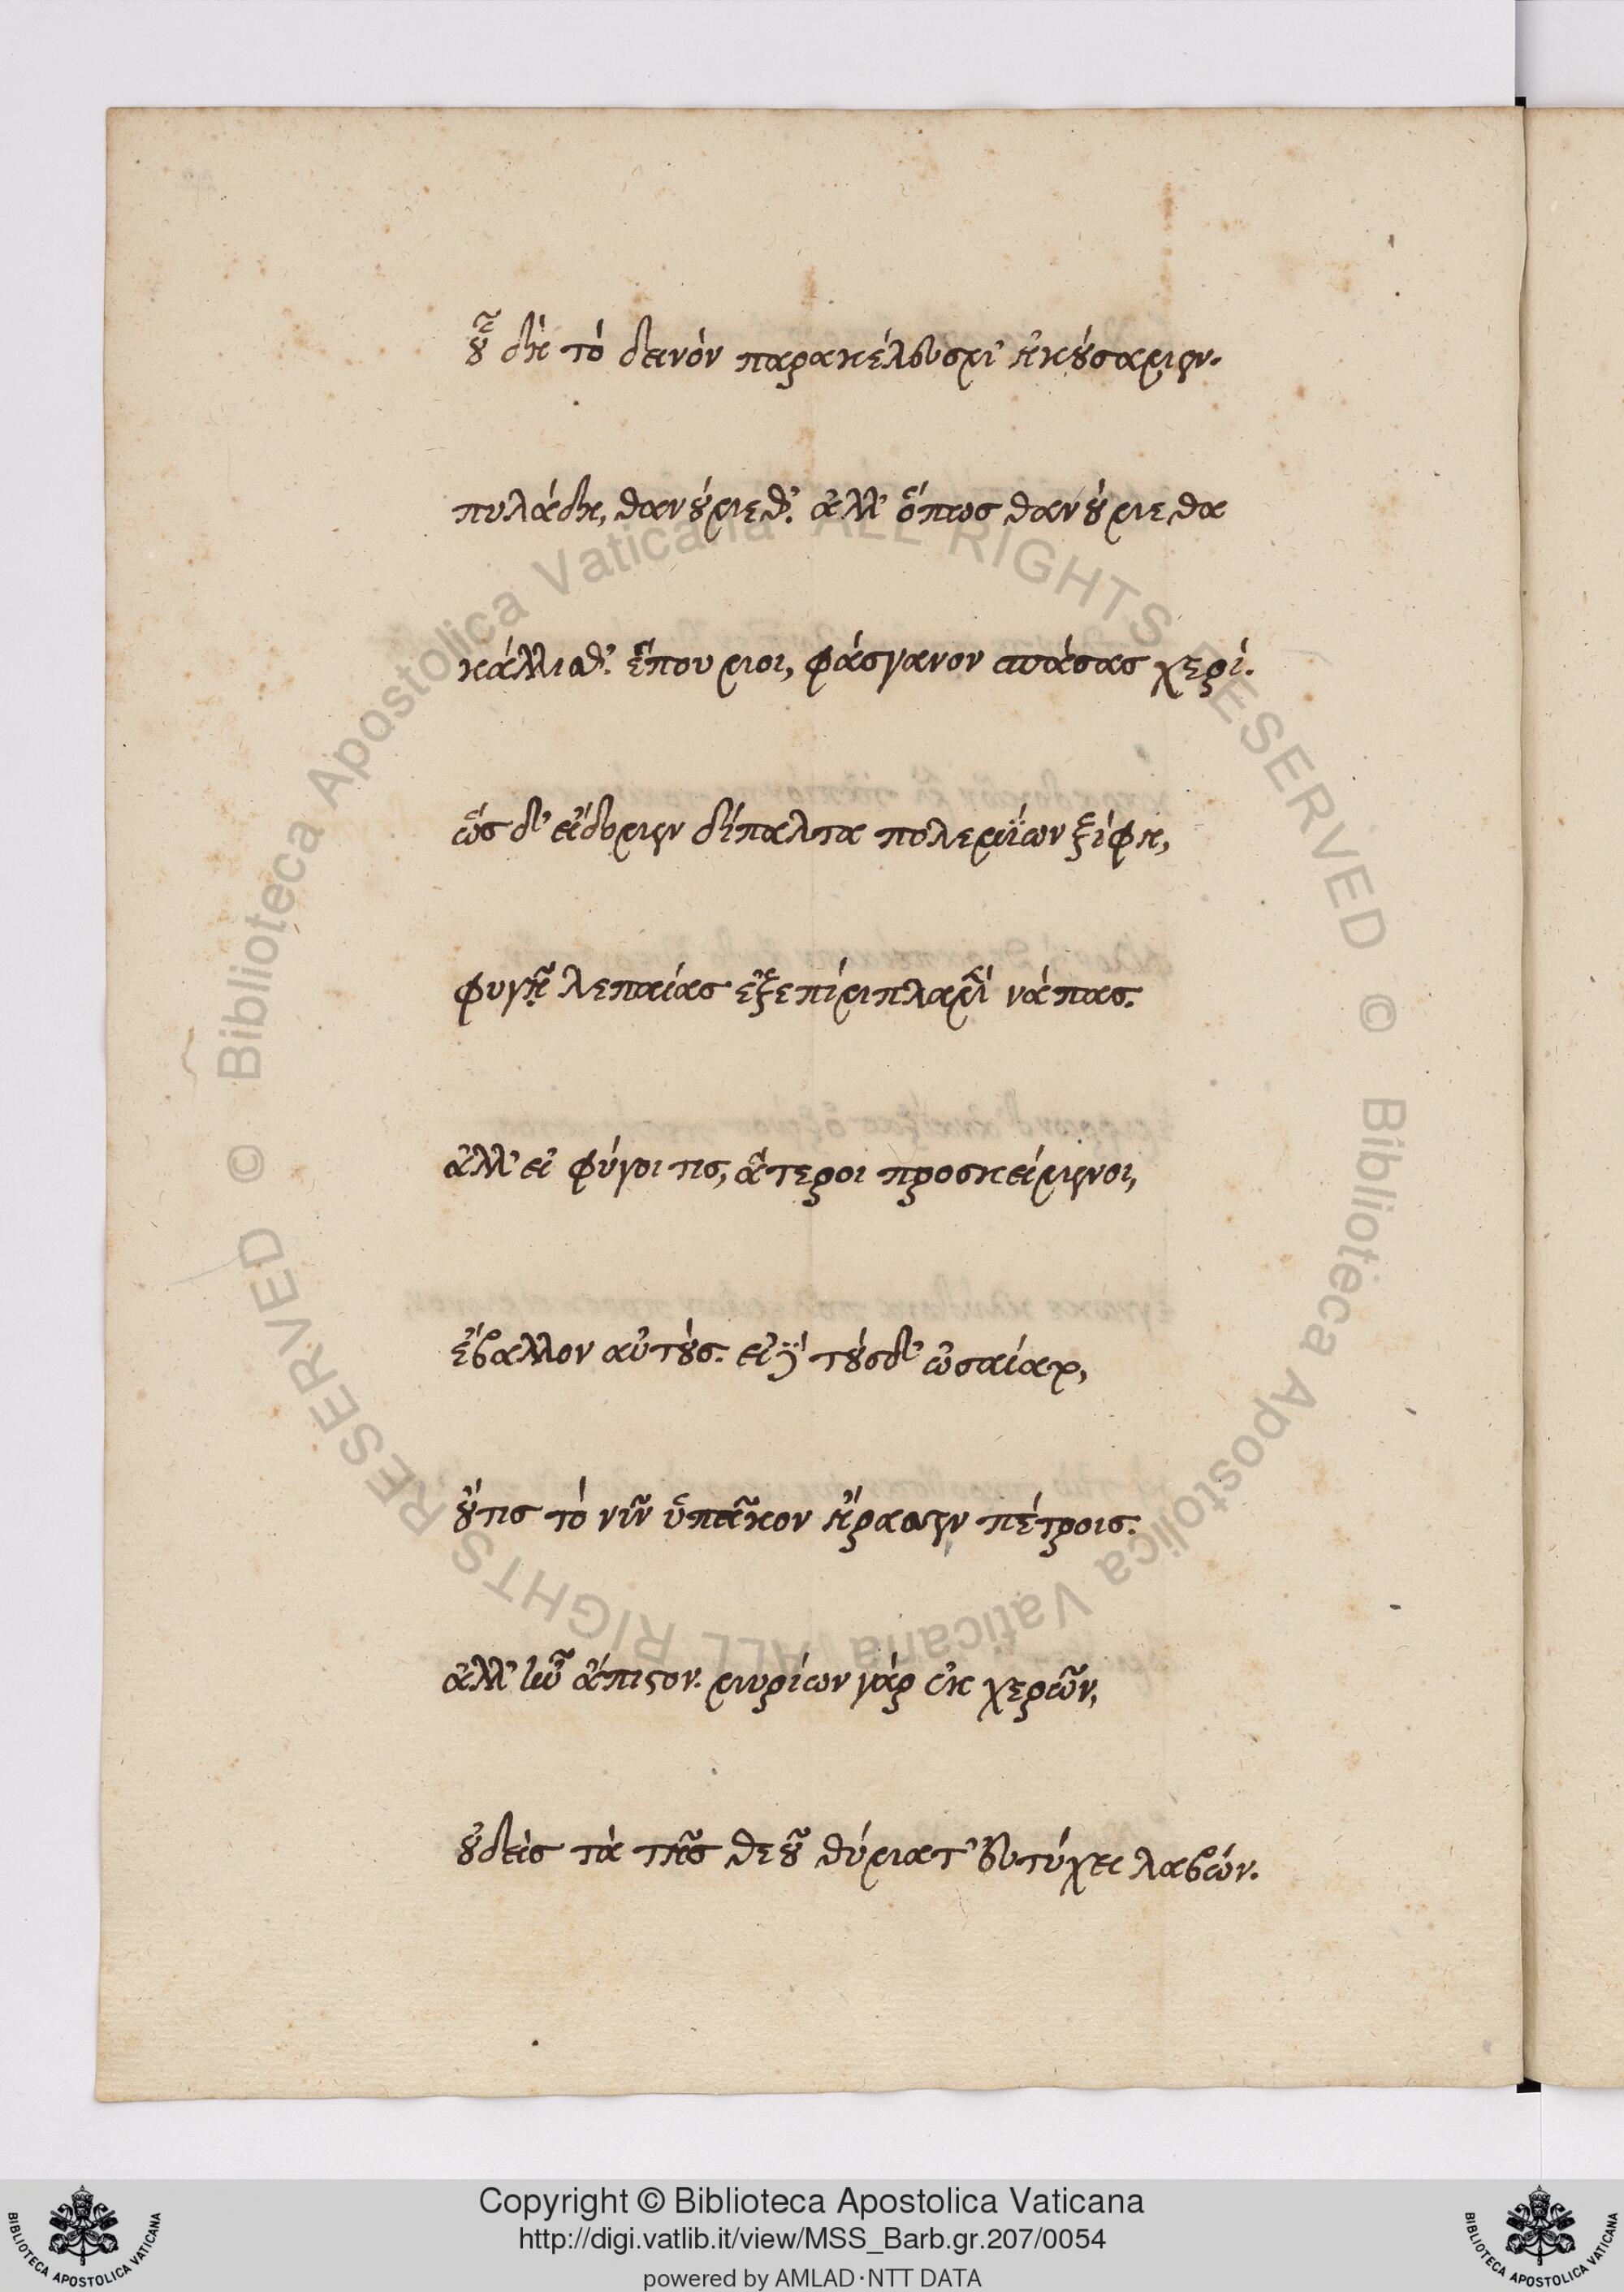 οὗ δὴ τὸ δεινὸν παρακέλευσμ' ἠκούσαμεν.
πυλάδη, θανούμεθ'. ἀλλ' ὅπως θανούμεθα
κάλλισθ'. ἕπου μοι, φάσγανον σπάσας χερί.
ὡς δ' εἴδομεν δίπαλτα πολεμίων ξίφη,
φυγῇ λεπαίας ἐξεπίμπλαμεν νάπας.
ἀλλ' εἰ φύγοι τις, ἅτεροι προσκείμενοι,
ἔβαλλον αὐτούς. εἰ δὲ τούσδ' ὠσαίατο,
οὖτις τὸ νῦν ὑπεῖκον ἤρασσεν πέτροις.
ἀλλ' ἦν ἄπιστον. μυρίων γὰρ ἐκ χερῶν,
οὐδεὶς τὰ τῆς θεοῦ θύματ' εὐτύχει λαβών.
Biblioteca Apostolica Vaticana ALL RIGHTS RESERVED ©
Biblioteca Apostolica Vaticana ALL RIGHTS RESERVED ©
Copyright © Biblioteca Apostolica Vaticana
http://digi.vatlib.it/view/MSS_Barb.gr.207/0054
powered by AMLAD·NTT DATA
BIBLIOTECA APOSTOLICA VATICANA
BIBLIOTECA APOSTOLICA VATICANA